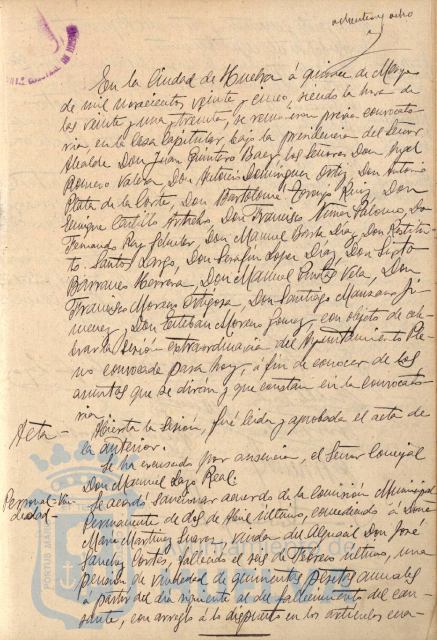 ochenta y ocho
En la Ciudad de Huelva á quince de Mayo
de mil novecientos veinte y cinco, siendo la hora de
las veinte y una y treinta, se reunieron previa convocato
ria en la Casa Capitular, bajo la presidencia del Señor
Alcalde Don Juan Quintero Baez, los Señores Don Angel
Romero Valera, Don Antonio Dominguez Ortiz, Don Antonio
Plata de la Corte, Don Bartolomé Ruiz, Don
Enrique Castillo Don Francisco Palomo, Don
Fernando Rey Don Manuel Diaz, Don
Santos Largo, Don Serafin Lopez Diaz, Don Sixto
Barranco Herrera, Don Manuel Vela, Don
Francisco Moreno Ortega, Don Santiago Manzano Ji
menez y Don Esteban Moreno Gomez, con objeto de cele
brar la sesión extraordinaria del Ayuntamiento Ple
no convocada para hoy, á fin de conocer de los
asuntos que se dirán y que constan en la convocato
ria.
Acta - Abierta la sesión, fué leida y aprobada el acta de
la anterior.
Se ha excusado por ausencia, el Señor Concejal
Don Manuel Lazo Real.
Personal - Viu Se acordó sancionar acuerdo de la Comisión Municipal
dedad - Permanente de dos de Abril último, concediendo á Doña
Maria Martinez Suarez, viuda del Alguacil Don José
Sanchez Cortés, fallecido el seis de Febrero último, una
pensión de viudedad de quinientas pesetas anuales
á partir del dia siguiente al del fallecimiento del cau
sante, con arreglo á lo dispuesto en los articulos cua-
PORTUS MARIS
Ayuntamiento de